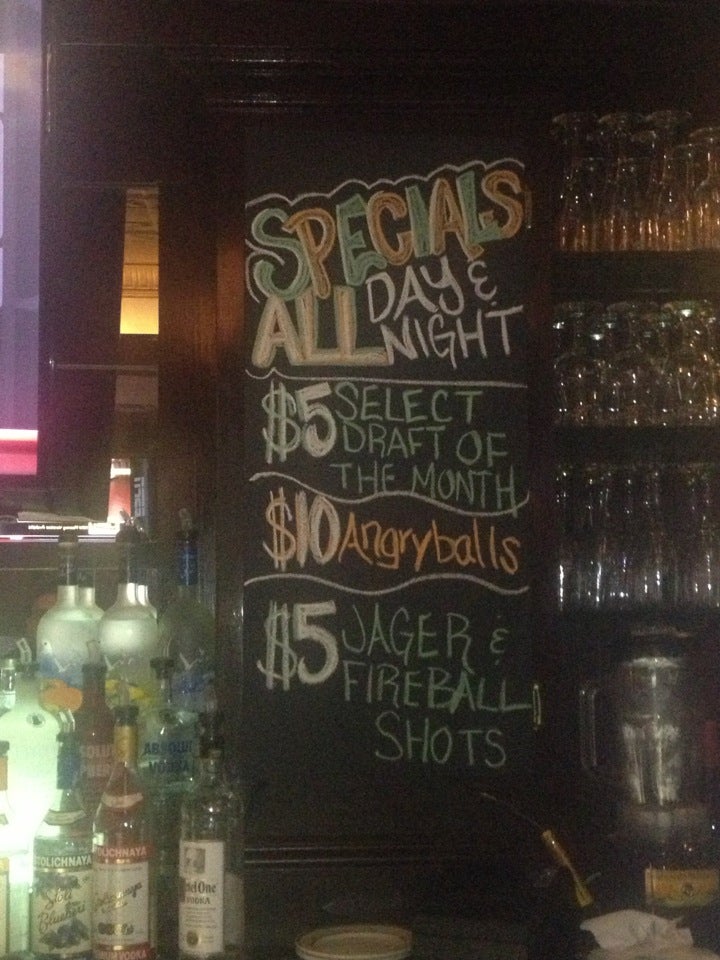 SPECIALS
ALL DAY &
NIGHT
$5 SELECT
DRAFT OF
THE MONTH
$10 Angryballs
$5 JAGER &
FIREBALL
SHOTS
ABSOLUT
VODKA
STOLICHNAYA
Stoli
Blueberi
PREMIUM VODKA
Ketel One
VODKA